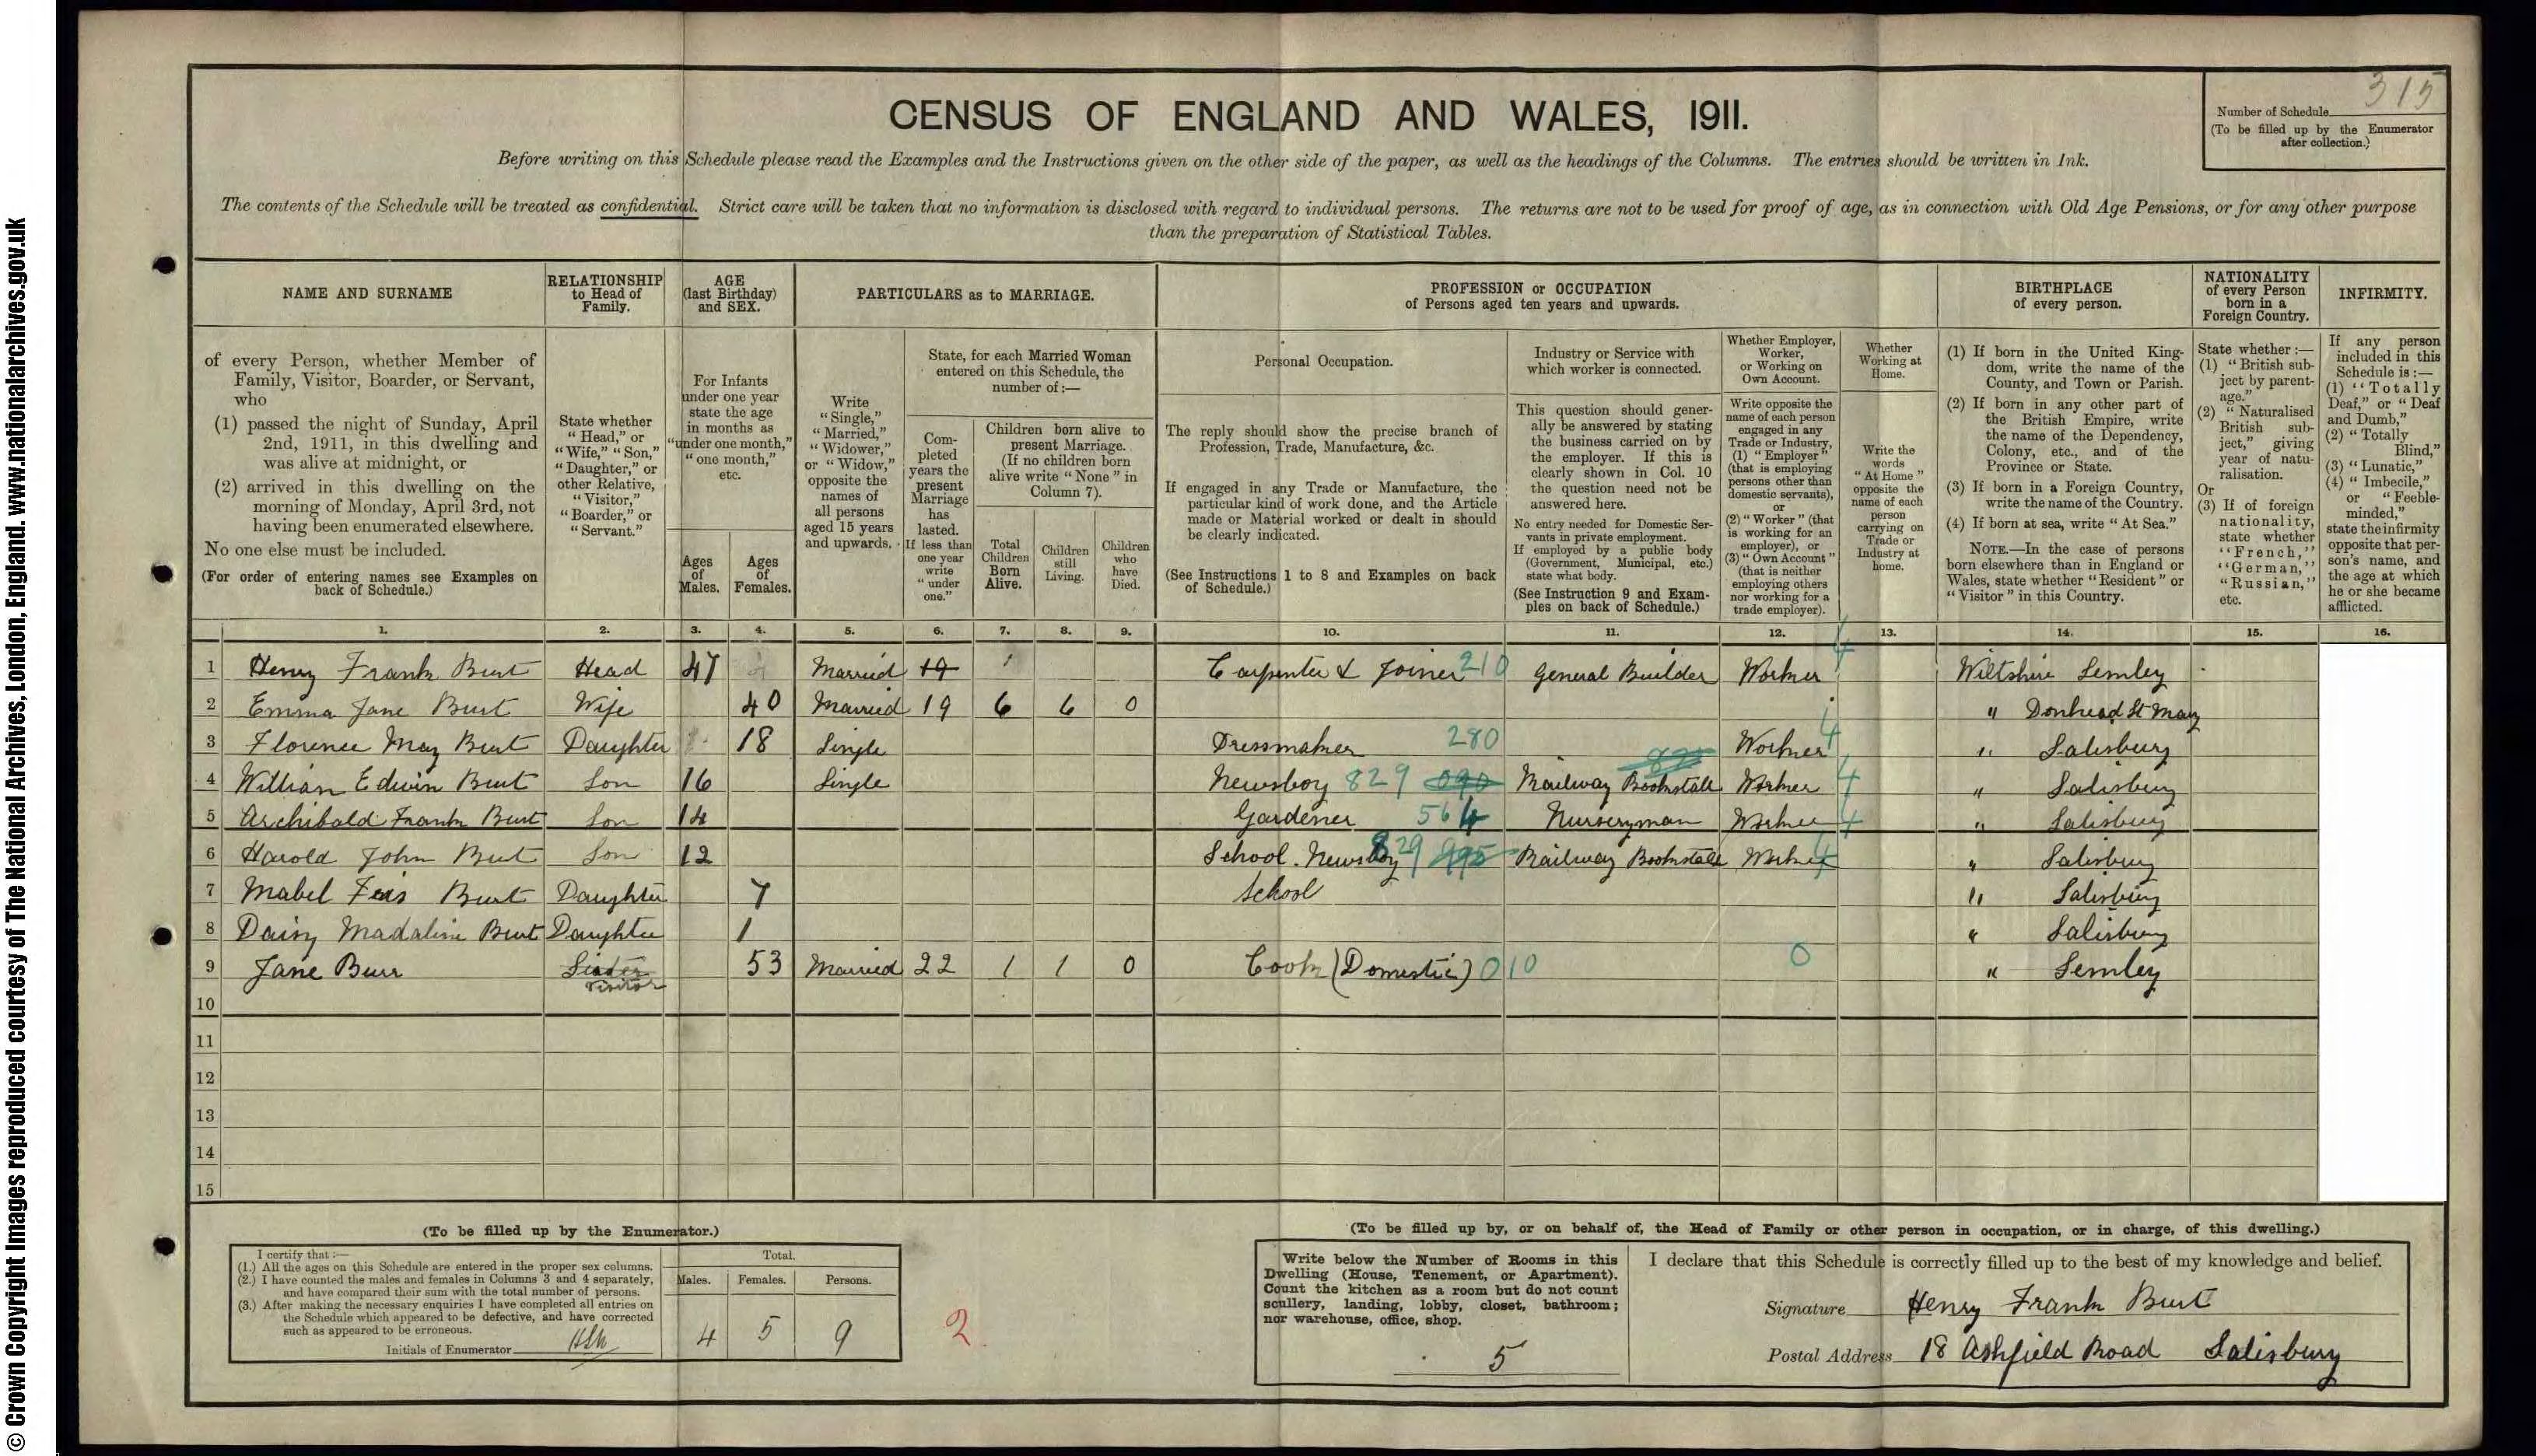 © Crown Copyright Images reproduced courtesy of The National Archives, London, England. www.nationalarchives.gov.uk
CENSUS OF ENGLAND AND WALES, 1911.
315
Number of Schedule
(To be filled up by the Enumerator
after collection.)
Before writing on this Schedule please read the Examples and the Instructions given on the other side of the paper, as well as the headings of the Columns. The entries should be written in Ink.
The contents of the Schedule will be treated as confidential. Strict care will be taken that no information is disclosed with regard to individual persons. The returns are not to be used for proof of age, as in connection with Old Age Pensions, or for any other purpose
than the preparation of Statistical Tables.
NAME AND SURNAME
of every Person, whether Member of
Family, Visitor, Boarder, or Servant,
who
(1) passed the night of Sunday, April
2nd, 1911, in this dwelling and
was alive at midnight, or
(2) arrived in this dwelling on the
morning of Monday, April 3rd, not
having been enumerated elsewhere.
No one else must be included.
(For order of entering names see Examples on
back of Schedule.)
RELATIONSHIP
to Head of
Family.
State whether
"Head," or
"Wife," "Son,"
"Daughter," or
other Relative,
"Visitor,"
"Boarder," or
"Servant."
AGE
(last Birthday)
and SEX.
For Infants
under one year
state the age
in months as
"under one month,"
"one month,"
etc.
Ages
of
Males.
Ages
of
Females.
PARTICULARS as to MARRIAGE.
Write
"Single,"
"Married,"
"Widower,"
or "Widow,"
opposite the
names of
all persons
aged 15 years
and upwards.
State, for each Married Woman
entered on this Schedule, the
number of:—
Com-
pleted
years the
present
Marriage
has
lasted.
If less than
one year
write
"under
one."
Children born alive to
present Marriage.
(If no children born
alive write "None" in
Column 7).
Total
Children
Born
Alive.
Children
still
Living.
Children
who
have
Died.
PROFESSION or OCCUPATION
of Persons aged ten years and upwards.
Personal Occupation.
The reply should show the precise branch of
Profession, Trade, Manufacture, &c.
If engaged in any Trade or Manufacture, the
particular kind of work done, and the Article
made or Material worked or dealt in should
be clearly indicated.
(See Instructions 1 to 8 and Examples on back
of Schedule.)
Industry or Service with
which worker is connected.
This question should gener-
ally be answered by stating
the business carried on by
the employer. If this is
clearly shown in Col. 10
the question need not be
answered here.
No entry needed for Domestic Ser-
vants in private employment.
If employed by a public body
(Government, Municipal, etc.)
state what body.
(See Instruction 9 and Exam-
ples on back of Schedule.)
Whether Employer,
Worker,
or Working on
Own Account.
Write opposite the
name of each person
engaged in any
Trade or Industry,
(1) "Employer"
(that is employing
persons other than
domestic servants),
or
(2) "Worker" (that
is working for an
employer), or
(3) "Own Account"
(that is neither
employing others
nor working for a
trade employer).
Whether
Working at
Home.
Write the
words
"At Home"
opposite the
name of each
person
carrying on
Trade or
Industry at
home.
BIRTHPLACE
of every person.
(1) If born in the United King-
dom, write the name of the
County, and Town or Parish.
(2) If born in any other part of
the British Empire, write
the name of the Dependency,
Colony, etc., and of the
Province or State.
(3) If born in a Foreign Country,
write the name of the Country.
(4) If born at sea, write "At Sea."
NOTE.—In the case of persons
born elsewhere than in England or
Wales, state whether "Resident" or
"Visitor" in this Country.
NATIONALITY
of every Person
born in a
Foreign Country.
State whether:—
(1) "British sub-
ject by parent-
age."
(2) "Naturalised
British sub-
ject," giving
year of natu-
ralisation.
Or
(3) If of foreign
nationality,
state whether
"French,"
"German,"
"Russian,"
etc.
INFIRMITY.
If any person
included in this
Schedule is:—
(1) "Totally
Deaf," or "Deaf
and Dumb,"
(2) "Totally
Blind,"
(3) "Lunatic,"
(4) "Imbecile,"
or "Feeble-
minded,"
state the infirmity
opposite that per-
son's name, and
the age at which
he or she became
afflicted.
1. 2. 3. 4. 5. 6. 7. 8. 9. 10. 11. 12. 13. 14. 15. 16.
1 Henry Frank Burt Head 47 Married 19 Carpenter & Joiner 210 General Builder Worker 4 Wiltshire Semley
2 Emma Jane Burt Wife 40 Married 19 6 6 0 " Donhead St Mary
3 Florence May Burt Daughter 18 Single Dressmaker 280 Worker 4 " Salisbury
4 William Edwin Burt Son 16 Single Newsboy 829 Railway Bookstall Worker 4 " Salisbury
5 Archibald Frank Burt Son 14 Gardener 564 Nurseryman Worker 4 " Salisbury
6 Harold John Burt Son 12 School. Newsboy 829 Railway Bookstall Worker 4 " Salisbury
7 Mabel Burt Daughter 7 School " Salisbury
8 Daisy Madaline Burt Daughter 1 " Salisbury
9 Jane Burr Sister Visitor 53 Married 22 1 1 0 Cook (Domestic) 010 0 " Semley
10
11
12
13
14
15
(To be filled up by the Enumerator.)
I certify that:—
(1.) All the ages on this Schedule are entered in the proper sex columns.
(2.) I have counted the males and females in Columns 3 and 4 separately,
and have compared their sum with the total number of persons.
(3.) After making the necessary enquiries I have completed all entries on
the Schedule which appeared to be defective, and have corrected
such as appeared to be erroneous.
Initials of Enumerator
Total.
Males. Females. Persons.
4 5 9
2
(To be filled up by, or on behalf of, the Head of Family or other person in occupation, or in charge, of this dwelling.)
Write below the Number of Rooms in this
Dwelling (House, Tenement, or Apartment).
Count the kitchen as a room but do not count
scullery, landing, lobby, closet, bathroom;
nor warehouse, office, shop.
5
I declare that this Schedule is correctly filled up to the best of my knowledge and belief.
Signature Henry Frank Burt
Postal Address 18 Ashfield Road Salisbury